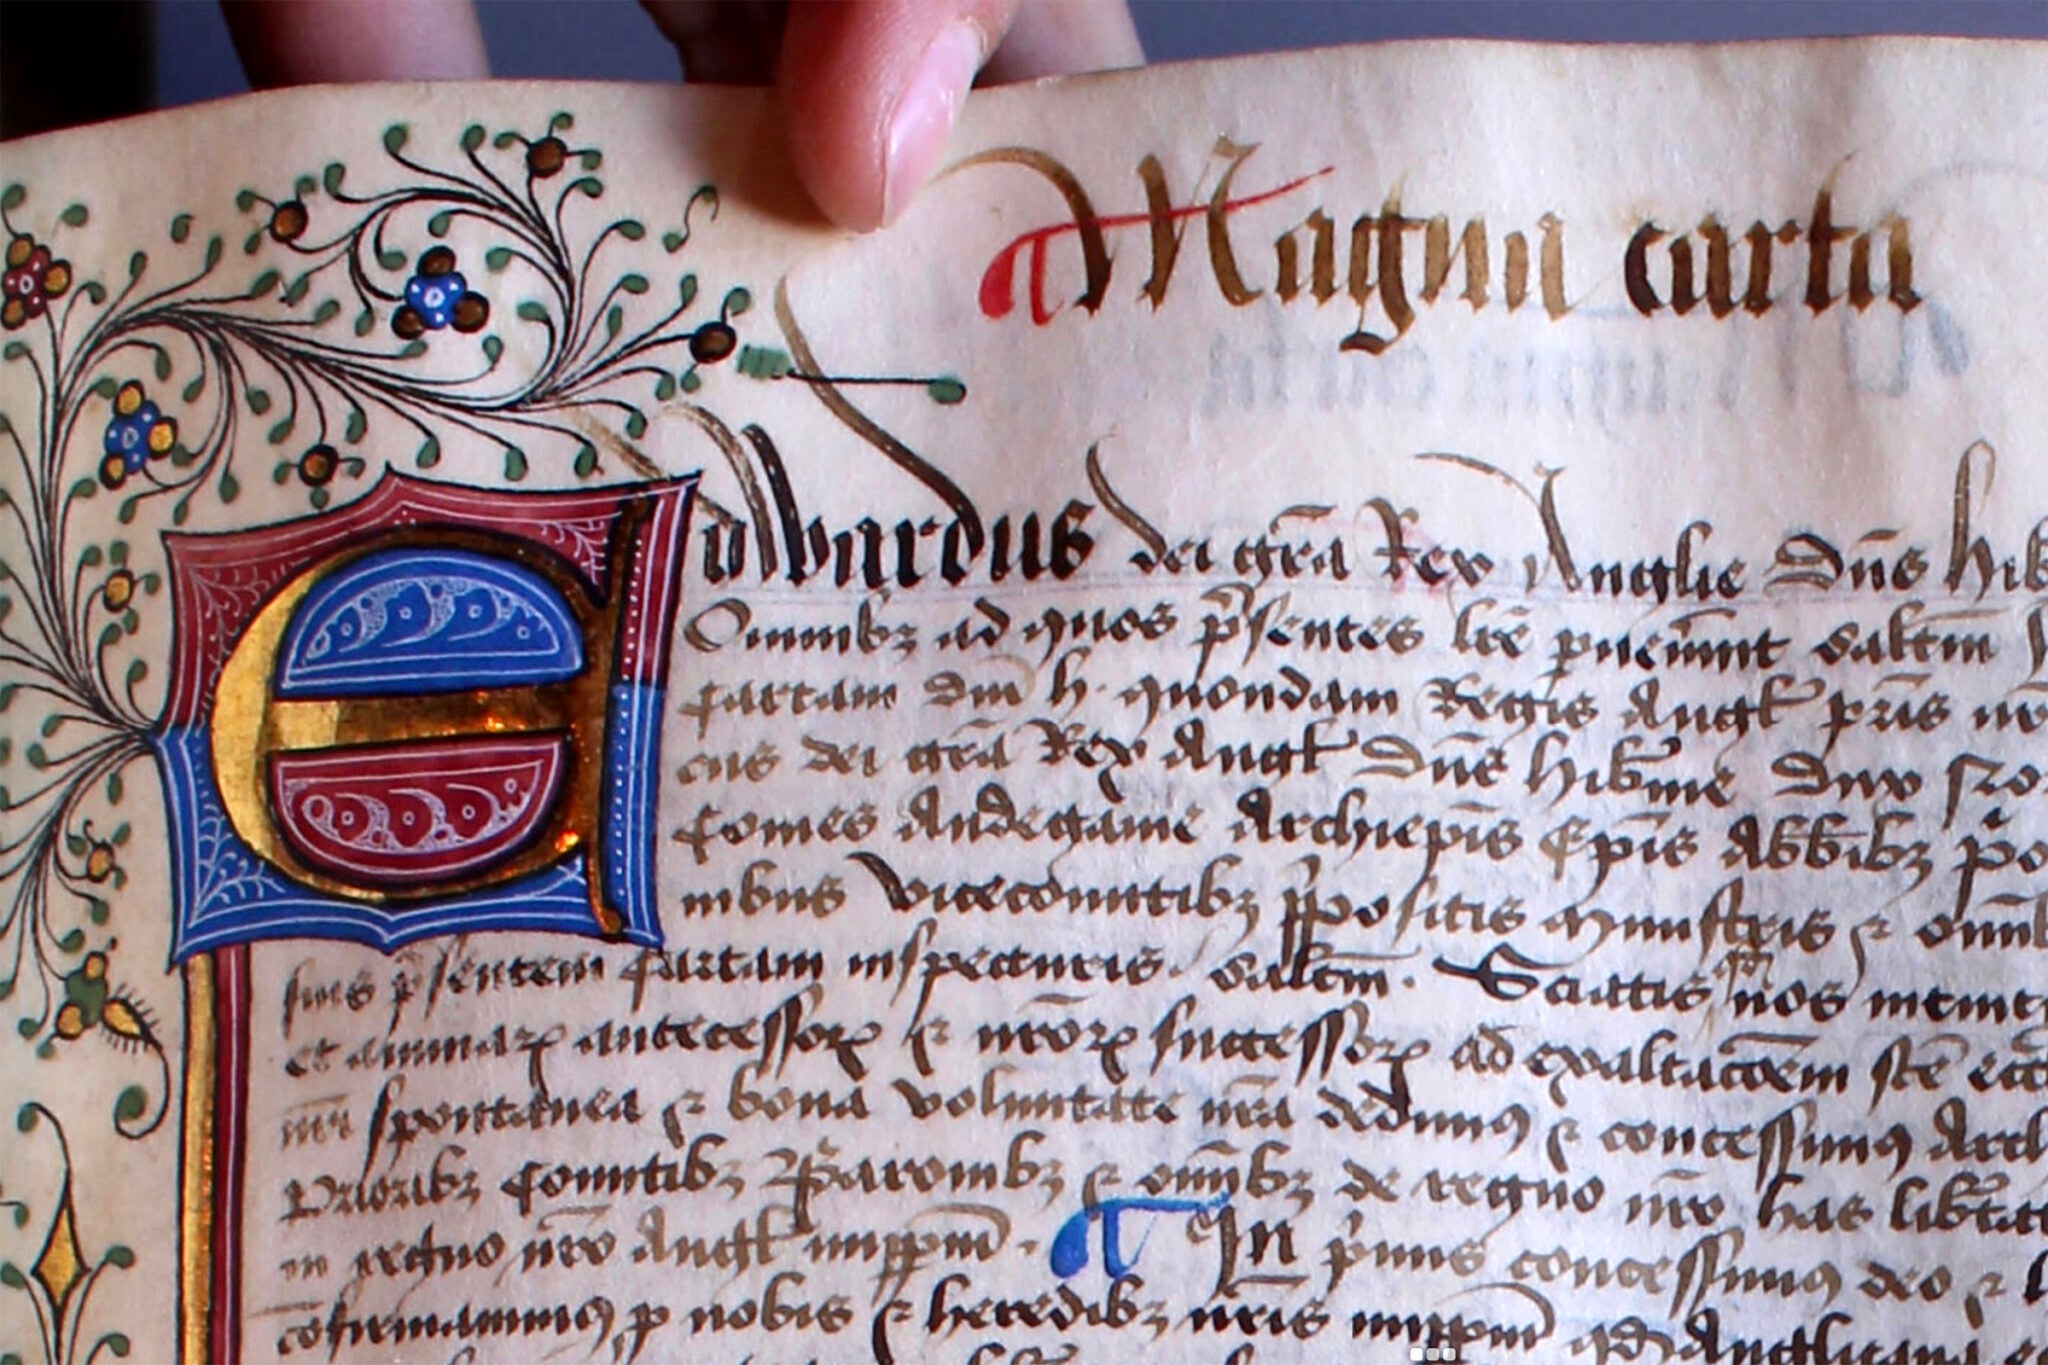 Magna carta
Edwardus dei gr̄a Rex Anglie Dn̄s Hib
Omnibꝫ ad quos p̄sentes lr̄e pueniūnt saltm̄
Cartam dn̄i h. quondam Regis Angl pr̄is nr̄
cus dei gr̄a Rex Angl Dn̄s Hibn̄ie Dux
Comes Andegauie Archiep̄is Ep̄is Abb̄ibꝫ P̄o
nibus vicecomitibꝫ p̄positis ministris ⁊ om̄ib
suis p̄sentem Cartam inspecturis. saltm̄. Sciatis qd̄ nos
et animaꝝ antecessoꝝ ⁊ nr̄oꝝ successoꝝ ad exaltac̄oem sc̄e
spontanea ⁊ bona voluntate nr̄a dedimꝰ ⁊ concessimꝰ Arch
Prioribꝫ Comitibꝫ Baronibꝫ ⁊ om̄ibꝫ de regno nr̄o has lib̄tat
in regno nr̄o Angl imꝑpm̄. In p̄mis concessimꝰ deo ⁊
cōfirmauimꝰ ꝑ nobis ⁊ heredibꝫ nr̄is imꝑpm̄ qd̄ Anglicana